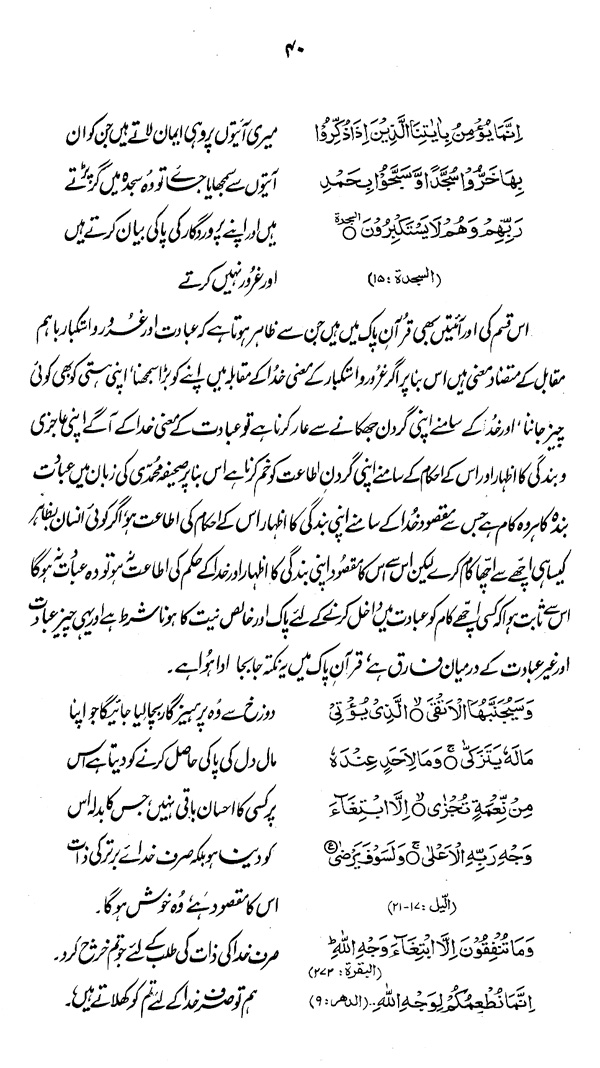 ۴۰
اِنَّمَا يُؤْمِنُ بِاٰيٰتِنَا الَّذِيْنَ اِذَا ذُكِّرُوْا
بِهَا خَرُّوْا سُجَّدًا وَّسَبَّحُوْا بِحَمْدِ
رَبِّهِمْ وَهُمْ لَا يَسْتَكْبِرُوْنَ السجدة
(السجدة : ۱۵)
میری آیتوں پر وہی ایمان لاتے ہیں جن کو ان
آیتوں سے سمجھایا جائے تو وہ سجدہ میں گر پڑتے
ہیں اور اپنے پروردگار کی پاکی بیان کرتے ہیں
اور غرور نہیں کرتے
اس قسم کی اور آیتیں بھی قرآن پاک میں ہیں جن سے ظاہر ہوتا ہے کہ عبادت اور غرور و استکبار باہم
مقابل کے متضاد معنی ہیں اس بنا پر اگر غرور و استکبار کے معنی خدا کے مقابلہ میں اپنے کو بڑا سمجھنا، اپنی ہستی کو بھی کوئی
چیز جاننا، اور خدا کے سامنے اپنی گردن جھکانے سے عار کرنا ہے تو عبادت کے معنی خدا کے آگے اپنی عاجزی
و بندگی کا اظہار اور اس کے احکام کے سامنے اپنی گردن اطاعت کو خم کرنا ہے اس بنا پر صحیفہ محمدی کی زبان میں عبادت
بندہ کا ہر وہ کام ہے جس سے مقصود خدا کے سامنے اپنی بندگی کا اظہار اس کے احکام کی اطاعت ہو اگر کوئی انسان بظاہر
کیسا ہی اچھے سے اچھا کام کرے لیکن اس سے اس کا مقصود اپنی بندگی کا اظہار اور خدا کے حکم کی اطاعت نہ ہو تو وہ عبادت نہ ہوگا
اس سے ثابت ہوا کہ کسی اچھے کام کو عبادت میں داخل کرنے کے لئے پاک اور خالص نیت کا ہونا شرط ہے اور یہی چیز عبادت
اور غیر عبادت کے درمیان فارق ہے، قرآن پاک میں یہ نکتہ جابجا ادا ہوا ہے۔
وَسَيُجَنَّبُهَا الْاَتْقَى الَّذِيْ يُؤْتِيْ
مَالَهٗ يَتَزَكّٰى وَمَا لِاَحَدٍ عِنْدَهٗ
مِنْ نِّعْمَةٍ تُجْزٰى اِلَّا ابْتِغَآءَ
وَجْهِ رَبِّهِ الْاَعْلٰى وَلَسَوْفَ يَرْضٰى
(الّیل : ۱۷-۲۱)
دوزخ سے وہ پرہیزگار بچا لیا جائیگا جو اپنا
مال دل کی پاکی حاصل کرنے کو دیتا ہے اس
پر کسی کا احسان باقی نہیں، جس کا بدلہ اس
کو دینا ہو بلکہ صرف خدائے برتر کی ذات
اس کا مقصود ہے، وہ خوش ہوگا۔
وَمَا تُنْفِقُوْنَ اِلَّا ابْتِغَآءَ وَجْهِ اللّٰهِ ط
(البقرة : ۲۷۲)
صرف خدا کی ذات کی طلب کے لئے جو تم خرچ کرو۔
اِنَّمَا نُطْعِمُكُمْ لِوَجْهِ اللّٰهِ .. (الدھر : ۹)
ہم تو صرف خدا کے لئے تم کو کھلاتے ہیں۔